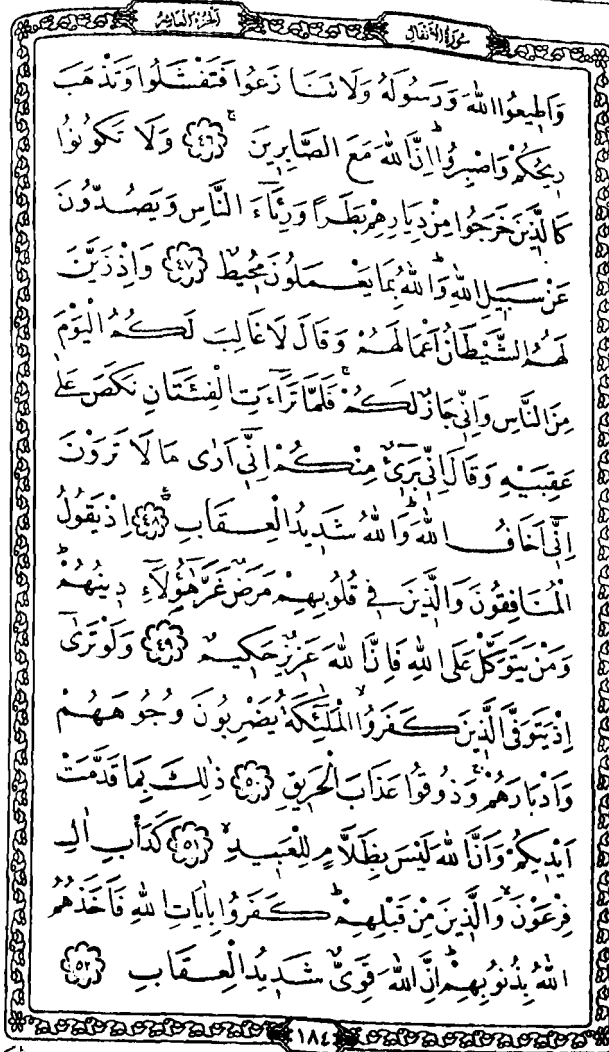 سُورَةُ الْاَنْفَالِ
اَلْجُزْءُ الْعَاشِرُ
وَاَطِيعُوا اللّٰهَ وَرَسُولَهُ وَلَا تَنَازَعُوا فَتَفْشَلُوا وَتَذْهَبَ
رِيحُكُمْ وَاصْبِرُوا اِنَّ اللّٰهَ مَعَ الصَّابِرِينَ ﴿٤٦﴾ وَلَا تَكُونُوا
كَالَّذِينَ خَرَجُوا مِنْ دِيَارِهِمْ بَطَراً وَرِئَاءَ النَّاسِ وَيَصُدُّونَ
عَنْ سَبِيلِ اللّٰهِ وَاللّٰهُ بِمَا يَعْمَلُونَ مُحِيطٌ ﴿٤٧﴾ وَاِذْ زَيَّنَ
لَهُمُ الشَّيْطَانُ اَعْمَالَهُمْ وَقَالَ لَا غَالِبَ لَكُمُ الْيَوْمَ
مِنَ النَّاسِ وَاِنِّي جَارٌ لَكُمْ فَلَمَّا تَرَاءَتِ الْفِئَتَانِ نَكَصَ عَلٰى
عَقِبَيْهِ وَقَالَ اِنِّي بَرِيءٌ مِنْكُمْ اِنِّي اَرٰى مَا لَا تَرَوْنَ
اِنِّي اَخَافُ اللّٰهَ وَاللّٰهُ شَدِيدُ الْعِقَابِ ﴿٤٨﴾ اِذْ يَقُولُ
الْمُنَافِقُونَ وَالَّذِينَ فِي قُلُوبِهِمْ مَرَضٌ غَرَّ هٰؤُلَاءِ دِينُهُمْ
وَمَنْ يَتَوَكَّلْ عَلَى اللّٰهِ فَاِنَّ اللّٰهَ عَزِيزٌ حَكِيمٌ ﴿٤٩﴾ وَلَوْ تَرٰى
اِذْ يَتَوَفَّى الَّذِينَ كَفَرُوا الْمَلٰئِكَةُ يَضْرِبُونَ وُجُوهَهُمْ
وَاَدْبَارَهُمْ وَذُوقُوا عَذَابَ الْحَرِيقِ ﴿٥٠﴾ ذٰلِكَ بِمَا قَدَّمَتْ
اَيْدِيكُمْ وَاَنَّ اللّٰهَ لَيْسَ بِظَلَّامٍ لِلْعَبِيدِ ﴿٥١﴾ كَدَأْبِ اٰلِ
فِرْعَوْنَ وَالَّذِينَ مِنْ قَبْلِهِمْ كَفَرُوا بِاٰيَاتِ اللّٰهِ فَاَخَذَهُمُ
اللّٰهُ بِذُنُوبِهِمْ اِنَّ اللّٰهَ قَوِيٌّ شَدِيدُ الْعِقَابِ ﴿٥٢﴾
١٨٤